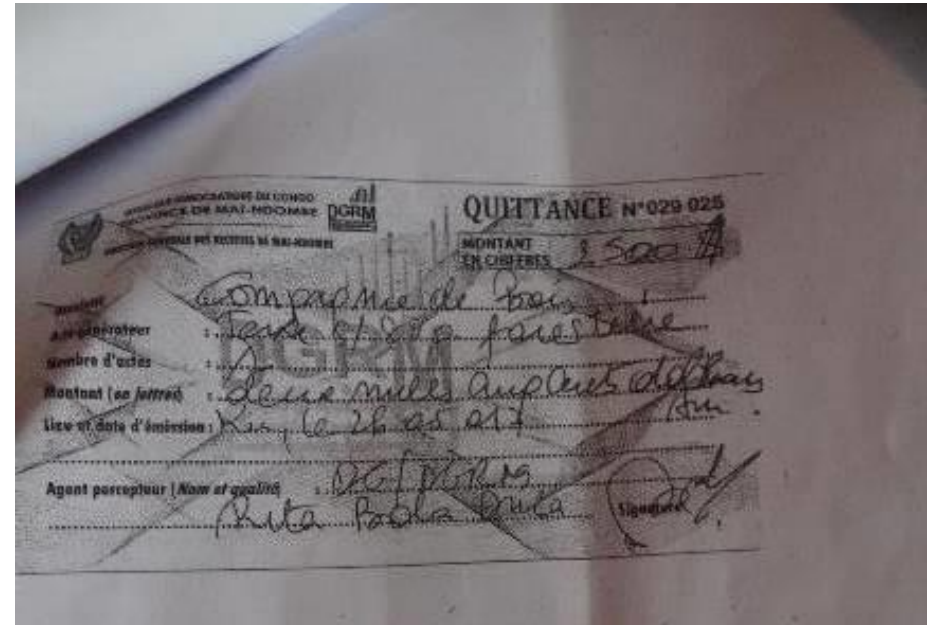 REPUBLIQUE DEMOCRATIQUE DU CONGO
PROVINCE DE MAI-NDOMBE
DGRM
DIRECTION GENERALE DES RECETTES DE MAI-NDOMBE
QUITTANCE N°029 025
MONTANT EN CHIFFRES 2 500 $
Assujetti : Compagnie de Bois
Acte générateur : Taxe s/ forestière
Nombre d'actes :
Montant (en lettres) : deux mille cinq cents dollars
Am.
Lieu et date d'émission : Kin, le 26 05 017
DGRM
Agent percepteur (Nom et qualité) : DG/DGRM
Rita Bola
Signature